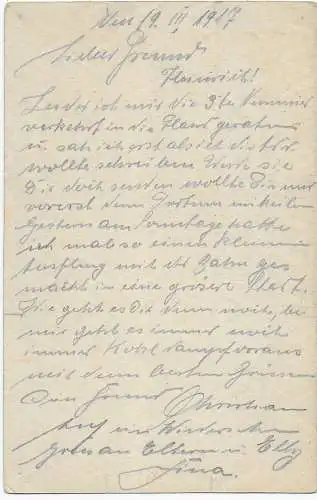 Den 19. III. 1917
Lieber Freund
Heinrich!
Leider ist mir die 3te Nummer
verkehrt in die Hand geraten
u. sah ich erst als ich die
wollte schreiben Werde sie
Dir doch senden wollte Dir nur
vorerst dem Irrtum mitteilen
Gestern am Sonntage hatte
ich mal so einen kleinen
Ausflug mit der Bahn ge
macht in eine grösere Stadt.
Wie geht es Dir denn noch, bei
mir geht es immer noch
immer Kohldampf voraus
mit den besten Grüssen
Dein Freund Christian
Auf ein Wiedersehen
grüss an Eltern u. Elly
Lina.